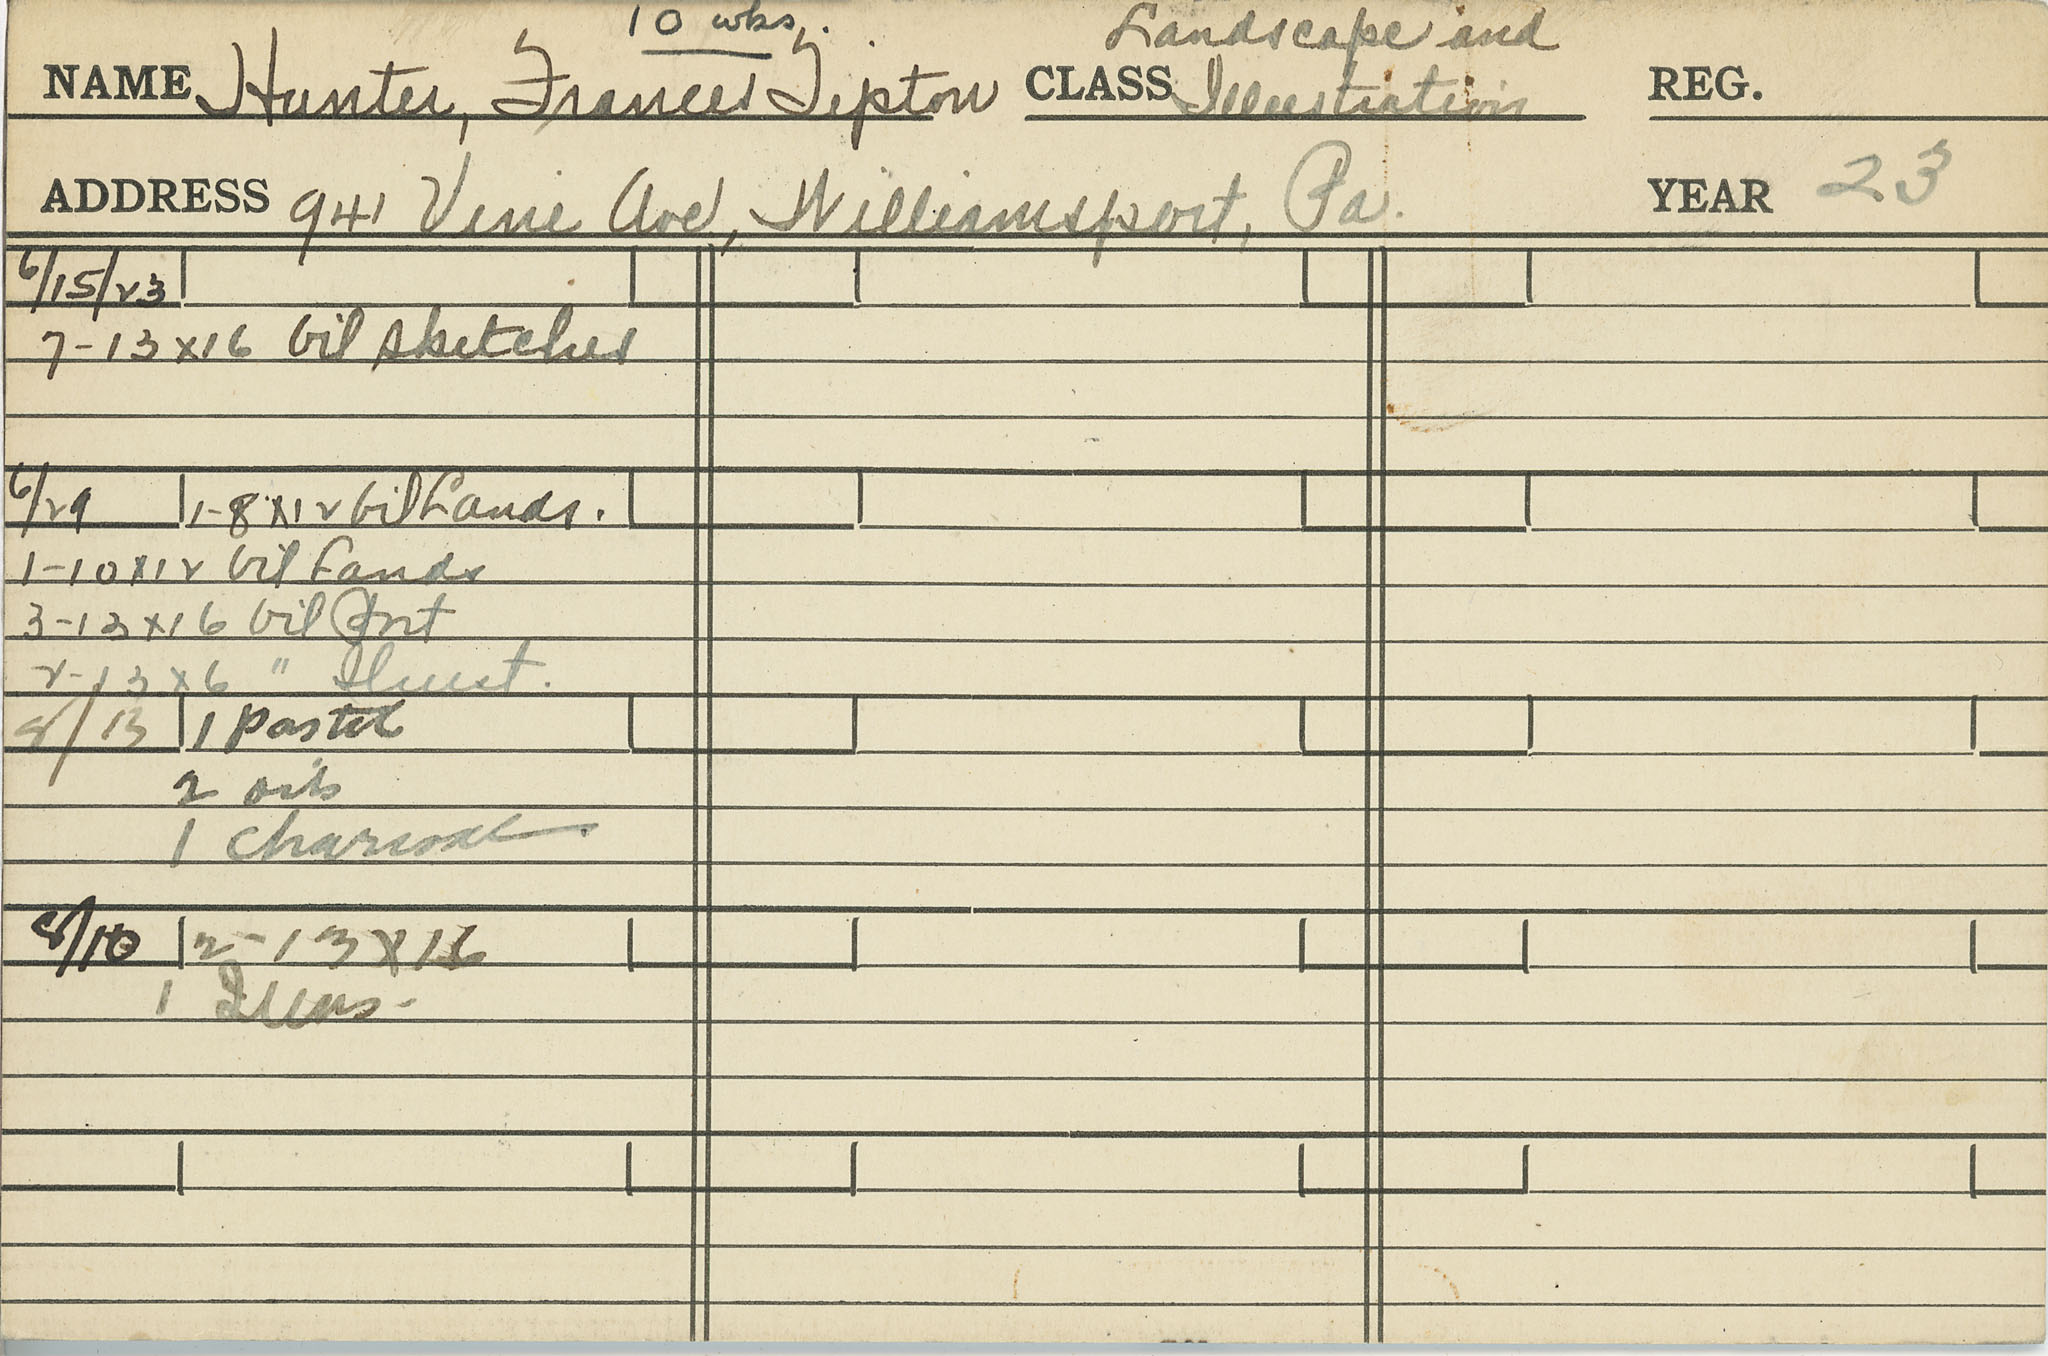 10 wks. Landscape and
NAME Hunter, Frances Tipton CLASS Illustration REG.
ADDRESS 941 Vine Ave, Williamsport, Pa. YEAR 23
6/15/23
7-13x16 Oil sketches
6/29 1-8x12 Oil Lands.
1-10x12 Oil Lands
3-13x16 Oil Port
2-13x6 " Illust.
8/13 1 pastel
2 oils
1 charcoal
8/10 2-13x16
1 Illus-